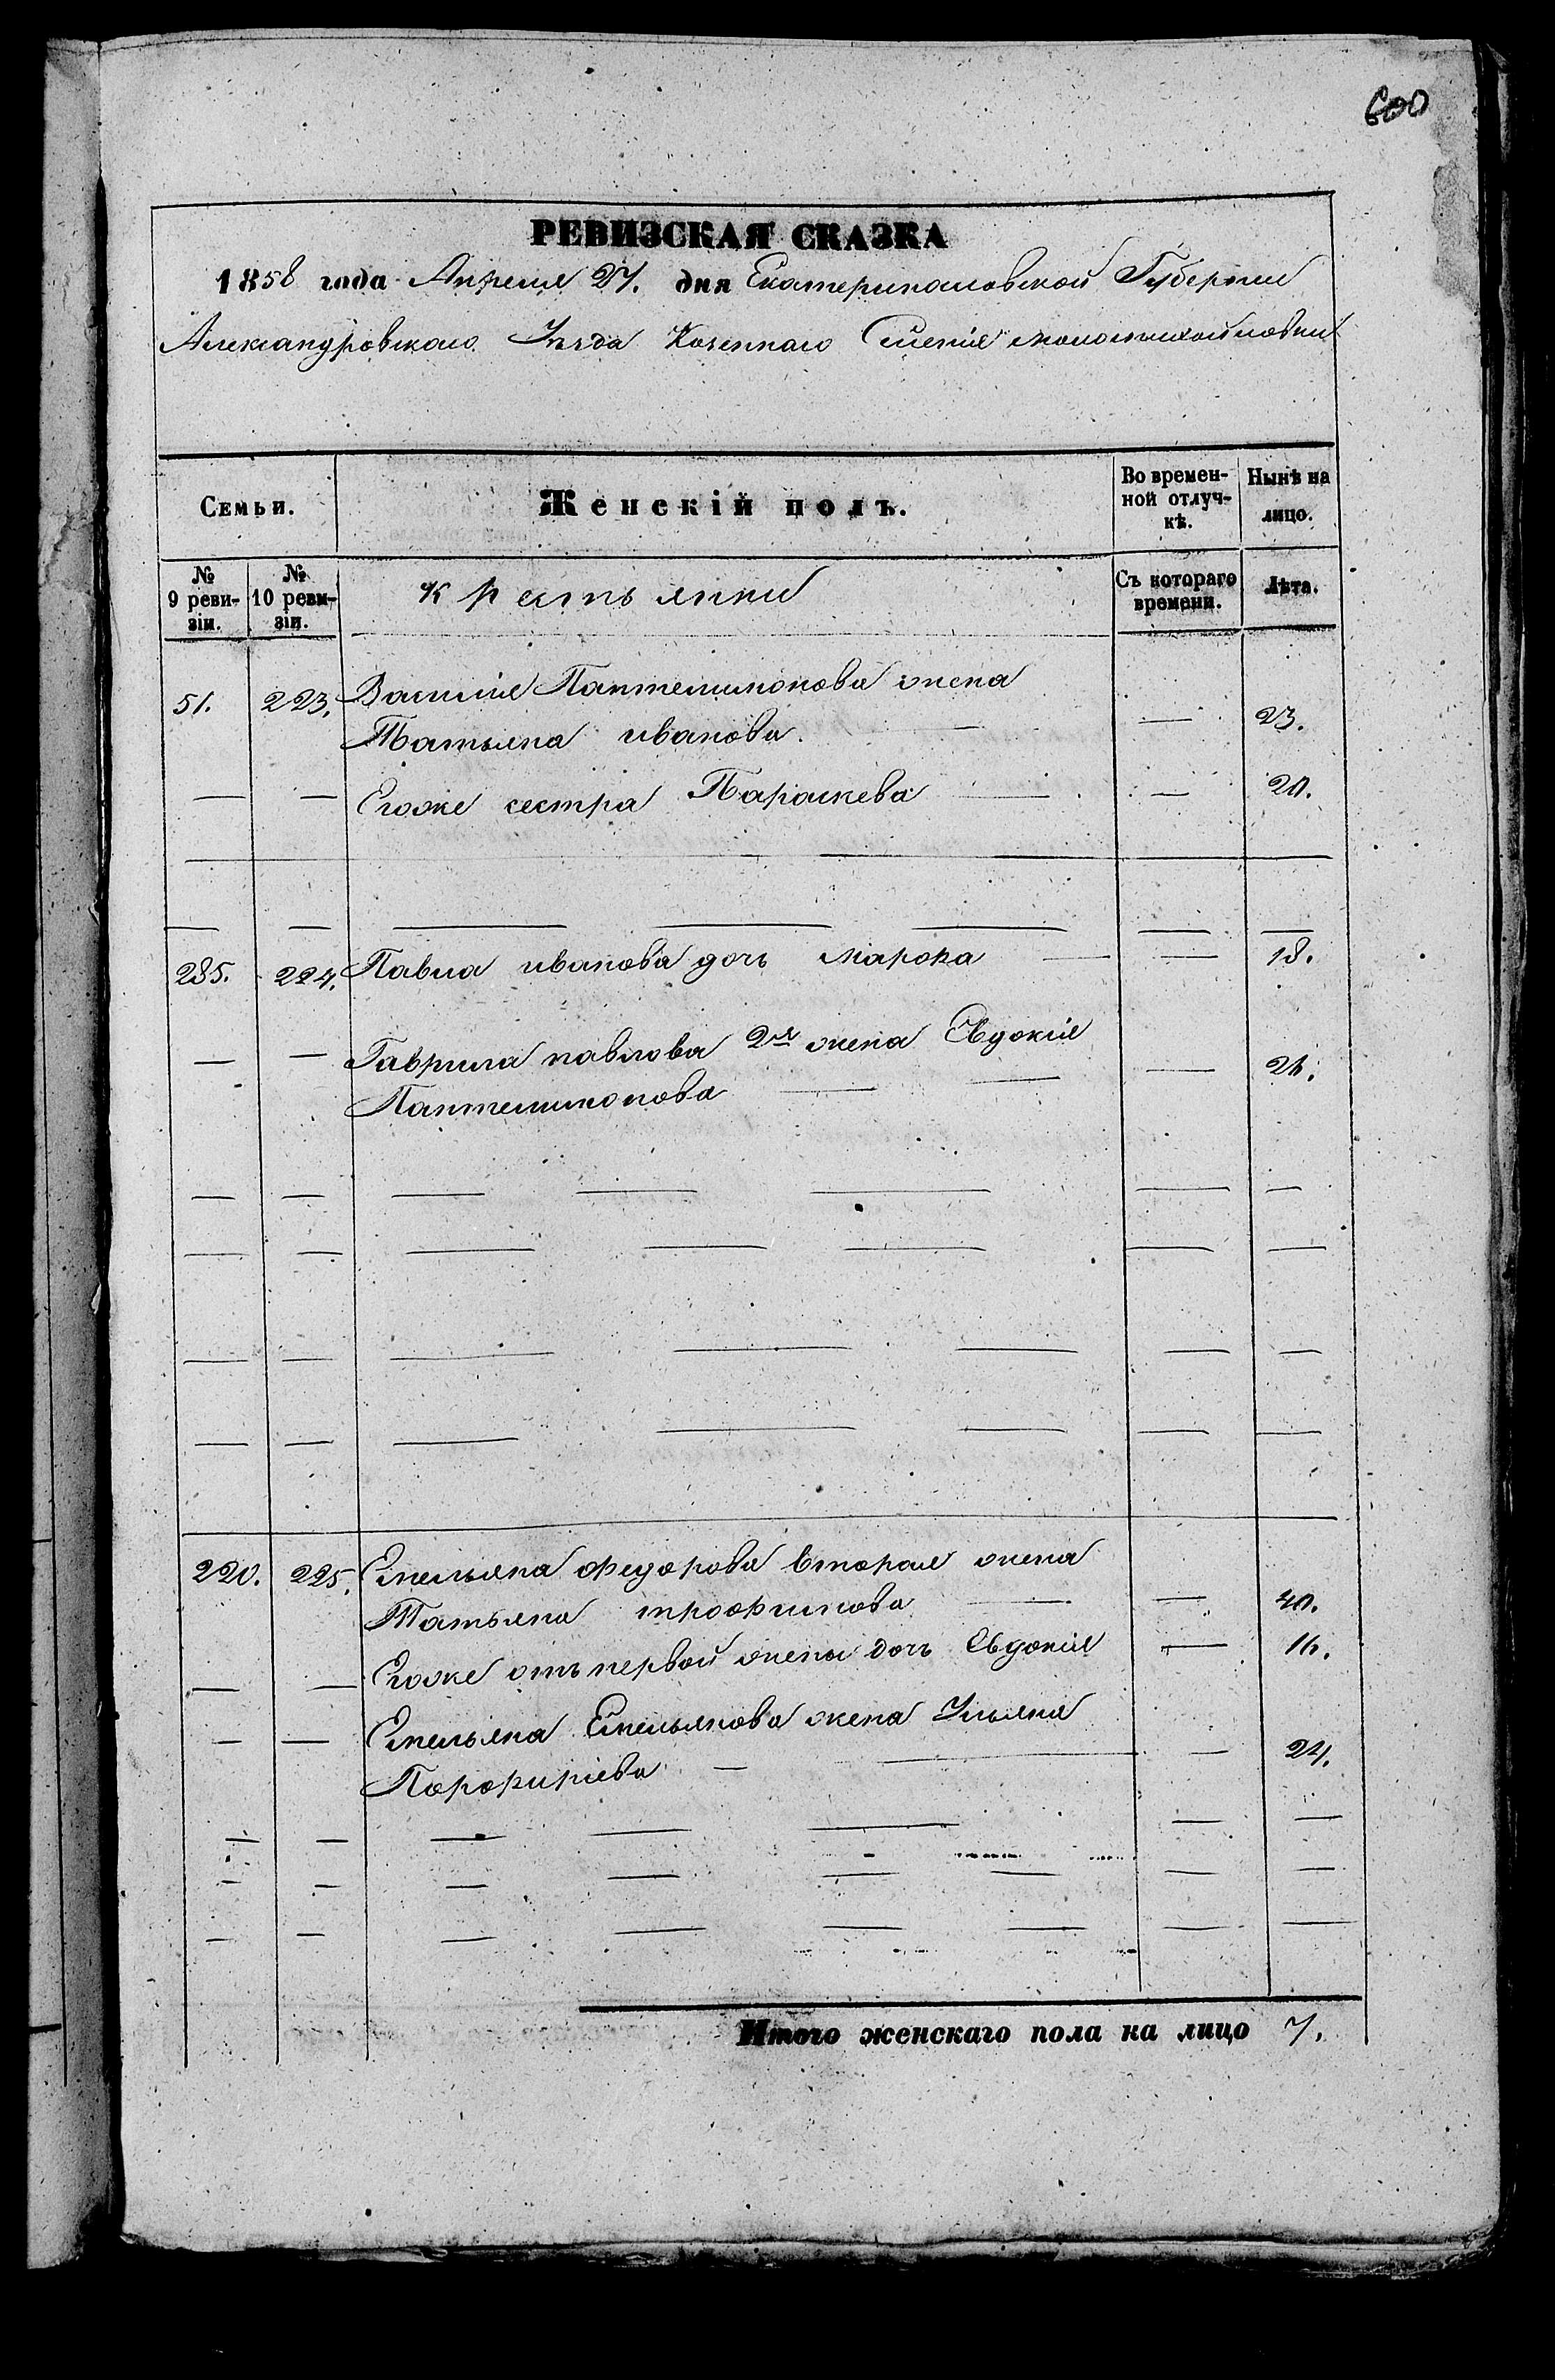 600
РЕВИЗСКАЯ СКАЗКА
1858 года Апреля 27. дня Екатеринославской Губернии
Александровскаго Уезда Козеннаго Силенія
Семьи. Женскій полъ. Во времен-ной отлуч-кѣ. Нынѣ на лицо.
№ 9 реви-зіи. № 10 реви-зіи. Крестьянки Съ котораго времени. Лѣта.
51. 223. Василія Пантелимонова жена
Татьяна иванова — — 23.
— — Егоже сестра Параскева — — 20.
285. 224. Павла иванова дочь — — 18.
— — Гаврила павлова 2я жена Евдокія
Пантелимонова — — —
220. 225. Емельяна федорова вторая жена
Татьяна трофимова — — 40.
— — Егоже отъ первой жены дочь Евдокія — 16.
— — Емельяна Емельянова жена Ульяна
Порфиріева — — — 24.
Итого женскаго пола на лицо 7.